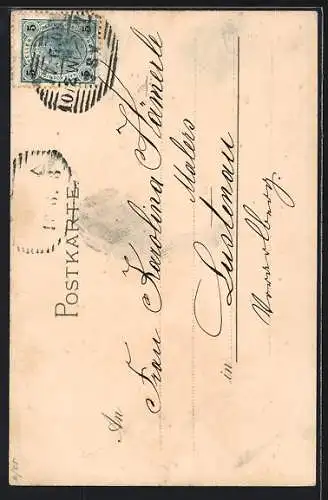 POSTKARTE.
An
Frau Karolina Hämerle
Malers
in Lustenau
Vorarlberg.
5 5
10/3